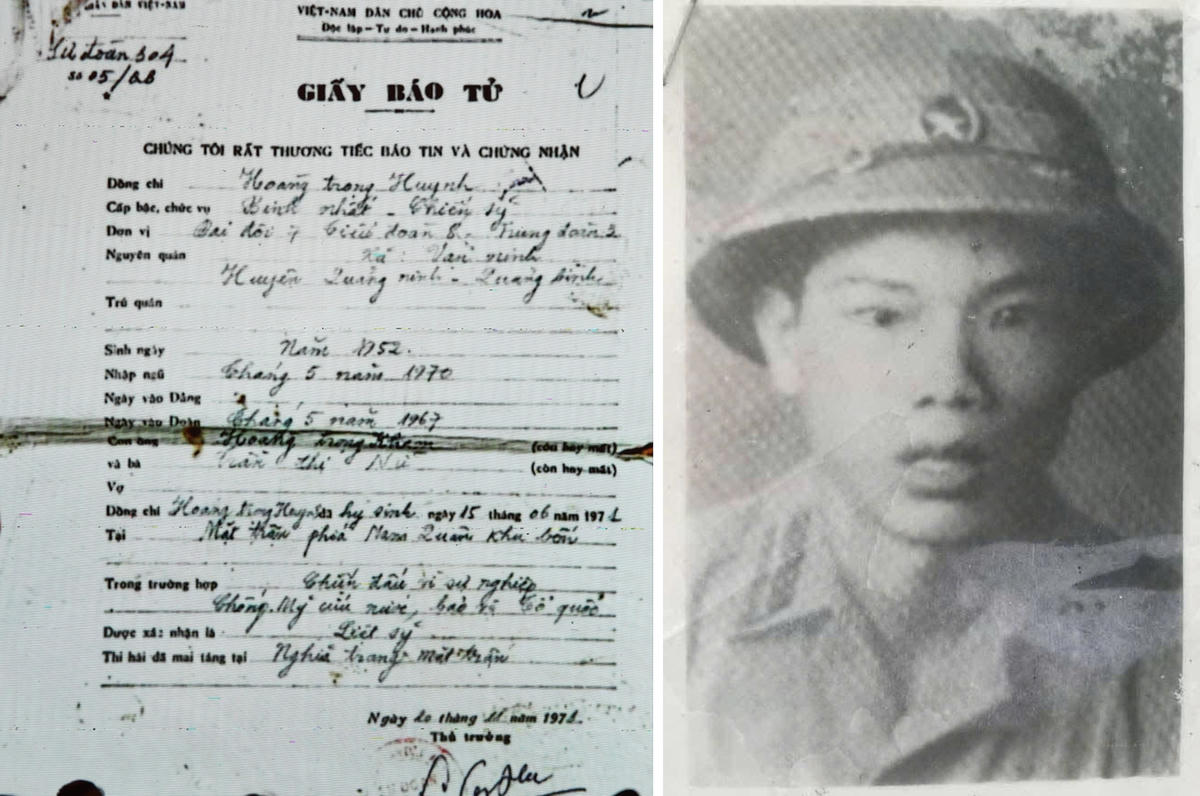 QUÂN ĐỘI NHÂN DÂN VIỆT-NAM
VIỆT-NAM DÂN CHỦ CỘNG HÒA
Độc lập – Tự do – Hạnh phúc
Sư đoàn 304
Số 05/BB
GIẤY BÁO TỬ
CHÚNG TÔI RẤT THƯƠNG TIẾC BÁO TIN VÀ CHỨNG NHẬN
Đồng chí Hoàng trọng Huynh
Cấp bậc, chức vụ Binh nhất – Chiến sỹ
Đơn vị Đai đội 7 Tiểu đoàn 8 - Trung đoàn 2
Nguyên quán Xã: Vạn ninh
Huyện Quảng ninh - Quảng bình
Trú quán
Sinh ngày Năm 1952.
Nhập ngũ Tháng 5 năm 1970
Ngày vào Đảng
Ngày vào Đoàn Tháng 5 năm 1967
Con ông Hoàng trọng Kham (còn hay mất)
và bà Trần thị Nu (còn hay mất)
Vợ
Đồng chí Hoàng trọng Huynh đã hy sinh ngày 15 tháng 06 năm 1972
Tại Mặt trận phía Nam Quân khu bốn
Trong trường hợp Chiến đấu vì sự nghiệp
Chống Mỹ cứu nước, bảo vệ Tổ quốc
Được xác nhận là Liệt sỹ
Thi hài đã mai táng tại Nghĩa trang mặt trận
Ngày 20 tháng năm 197
Thủ trưởng